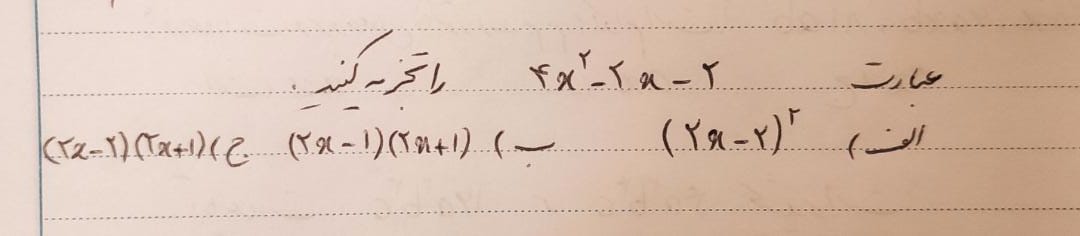 عبارت ۴x²-۲x-۲ را تجزیه کنید.
الف) (۲x-۲)² ب) (۲x-۱)(۲x+۱) ج) (۲x-۲)(۲x+۱)